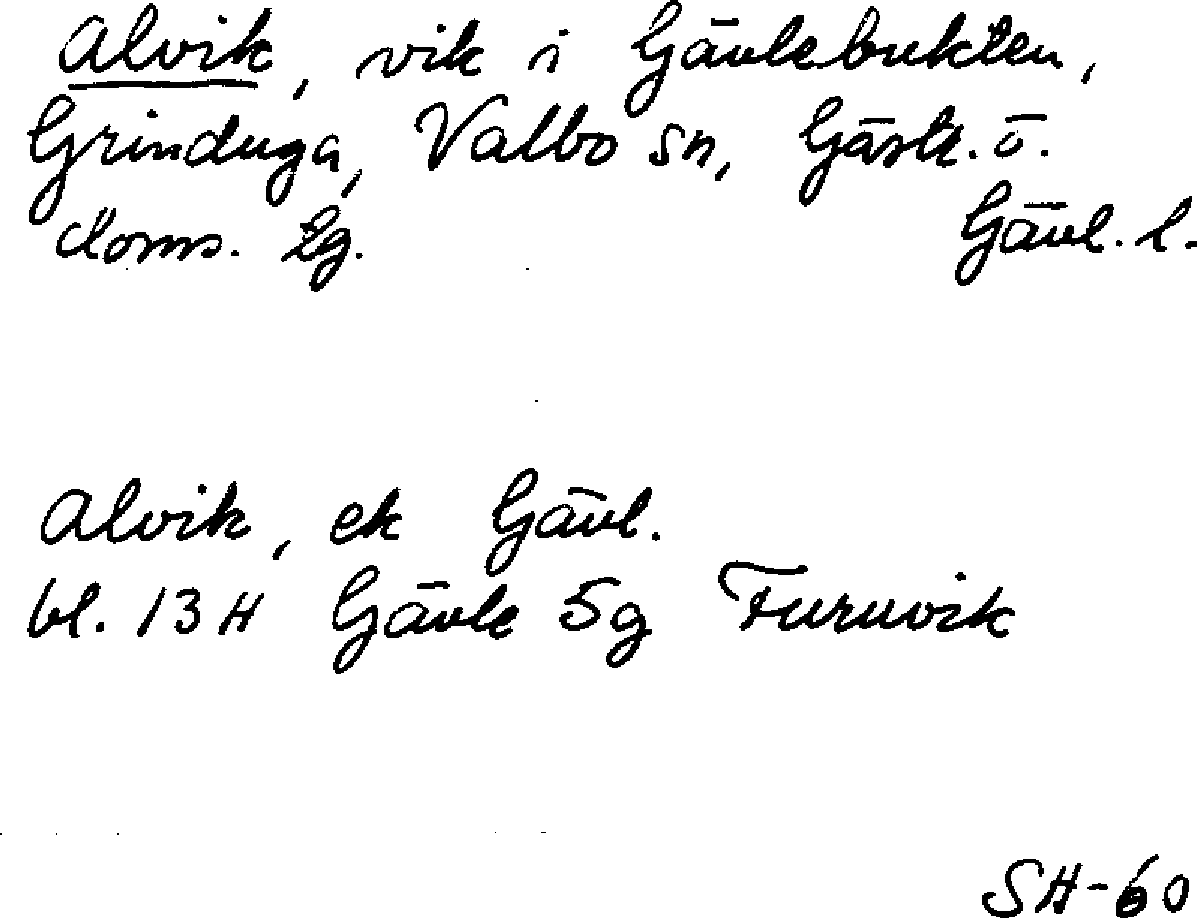 Alvik, vik i Gävlebukten,
Grinduga, Valbo sn, Gästr. ö.
doms. lg. Gävl. l.
Alvik, ek Gävl.
bl. 13 H Gävle 5g Furuvik
SH-60